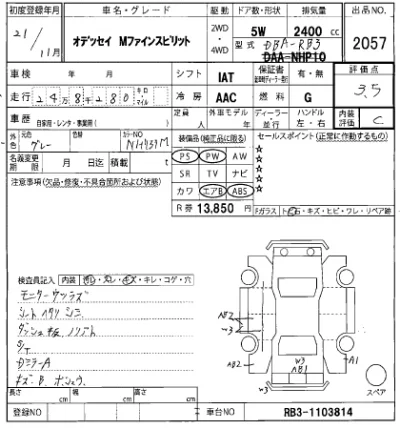 初度登録年月 車名・グレード 駆動 ドア数・形状 排気量 出品NO.
21/11月 オデッセイ Mファインスピリット 2WD・4WD 5W 2400 cc 2057
型式 DBA-RB3
DAA-NHP10
車検 年 月 シフト IAT 保証書 有・無 評価点
走行 24万8千280 キロ マイル 冷房 AAC 燃料 G 3.5
車歴 自家用・レンタ・事業用( ) 定員 人 外車モデル 年 ディーラー 並行 ハンドル 左・右 内装評価 C
外色 元色 グレー 色替 カラーNO
装備品(純正品に限る) セールスポイント(正常に作動するもの)
名義変更期限 月 日迄 積載 t
PS PW AW
SR TV ナビ
カワ エアB ABS
R券 13,850 円
☆
☆
☆
☆
☆
注意事項(欠品・修復・不具合箇所および状態)
Fガラス トビ石・キズ・ヒビ・ワレ・リペア跡
検査員記入 内装 キレ・コゲ・穴
モニターウツラズ
シート
ダッシュ板 ノリアト
S/T
DミラーA
キズ・B
AB2
W3
AB2
W3
AB1
W3
A1
スペア
長さ cm 幅 cm 高さ cm
登録NO 車台NO RB3-1103814